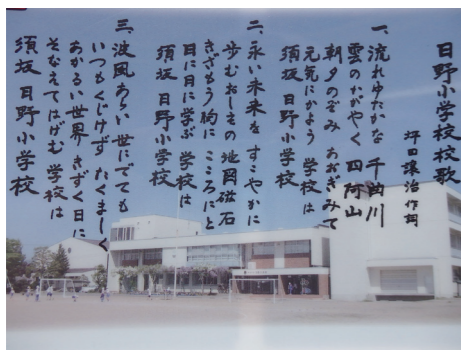 日野小学校校歌
坪田譲治作詞
一、流れゆたかな 千曲川
雲のかがやく 四阿山
朝夕のぞみ あおぎみて
元気にかよう 学校は
須坂 日野小学校
二、永い未来を すこやかに
歩むおしえの 地図磁石
きざもう胸に こころにと
日に日に学ぶ 学校は
須坂 日野小学校
三、波風あらい 世にでても
いつもくじけず たくましく
あかるい世界 きずく日に
そなえてはげむ 学校は
須坂 日野小学校